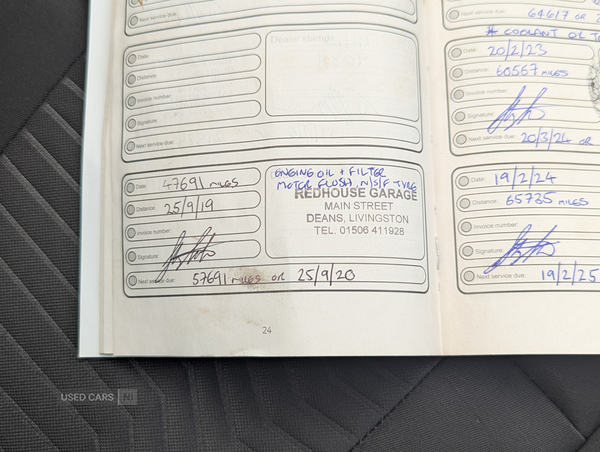 Next service due:
Date:
Distance:
Invoice number:
Signature:
Next service due:
Dealer stamp:
Date: 47691 MILES
Distance: 25/9/19
Invoice number:
Signature:
Next service due: 57691 MILES OR 25/9/20
ENGINE OIL + FILTER
MOTOR FLUSH, N/S/F TYRE
REDHOUSE GARAGE
MAIN STREET
DEANS, LIVINGSTON
TEL. 01506 411928
24
Next service due: 64617 OR
* COOLANT OIL
Date: 20/2/23
Distance: 60567 MILES
Invoice number:
Signature:
Next service due: 20/3/24 OR
Date: 19/2/24
Distance: 65735 MILES
Invoice number:
Signature:
Next service due: 19/2/25
USED CARS NI